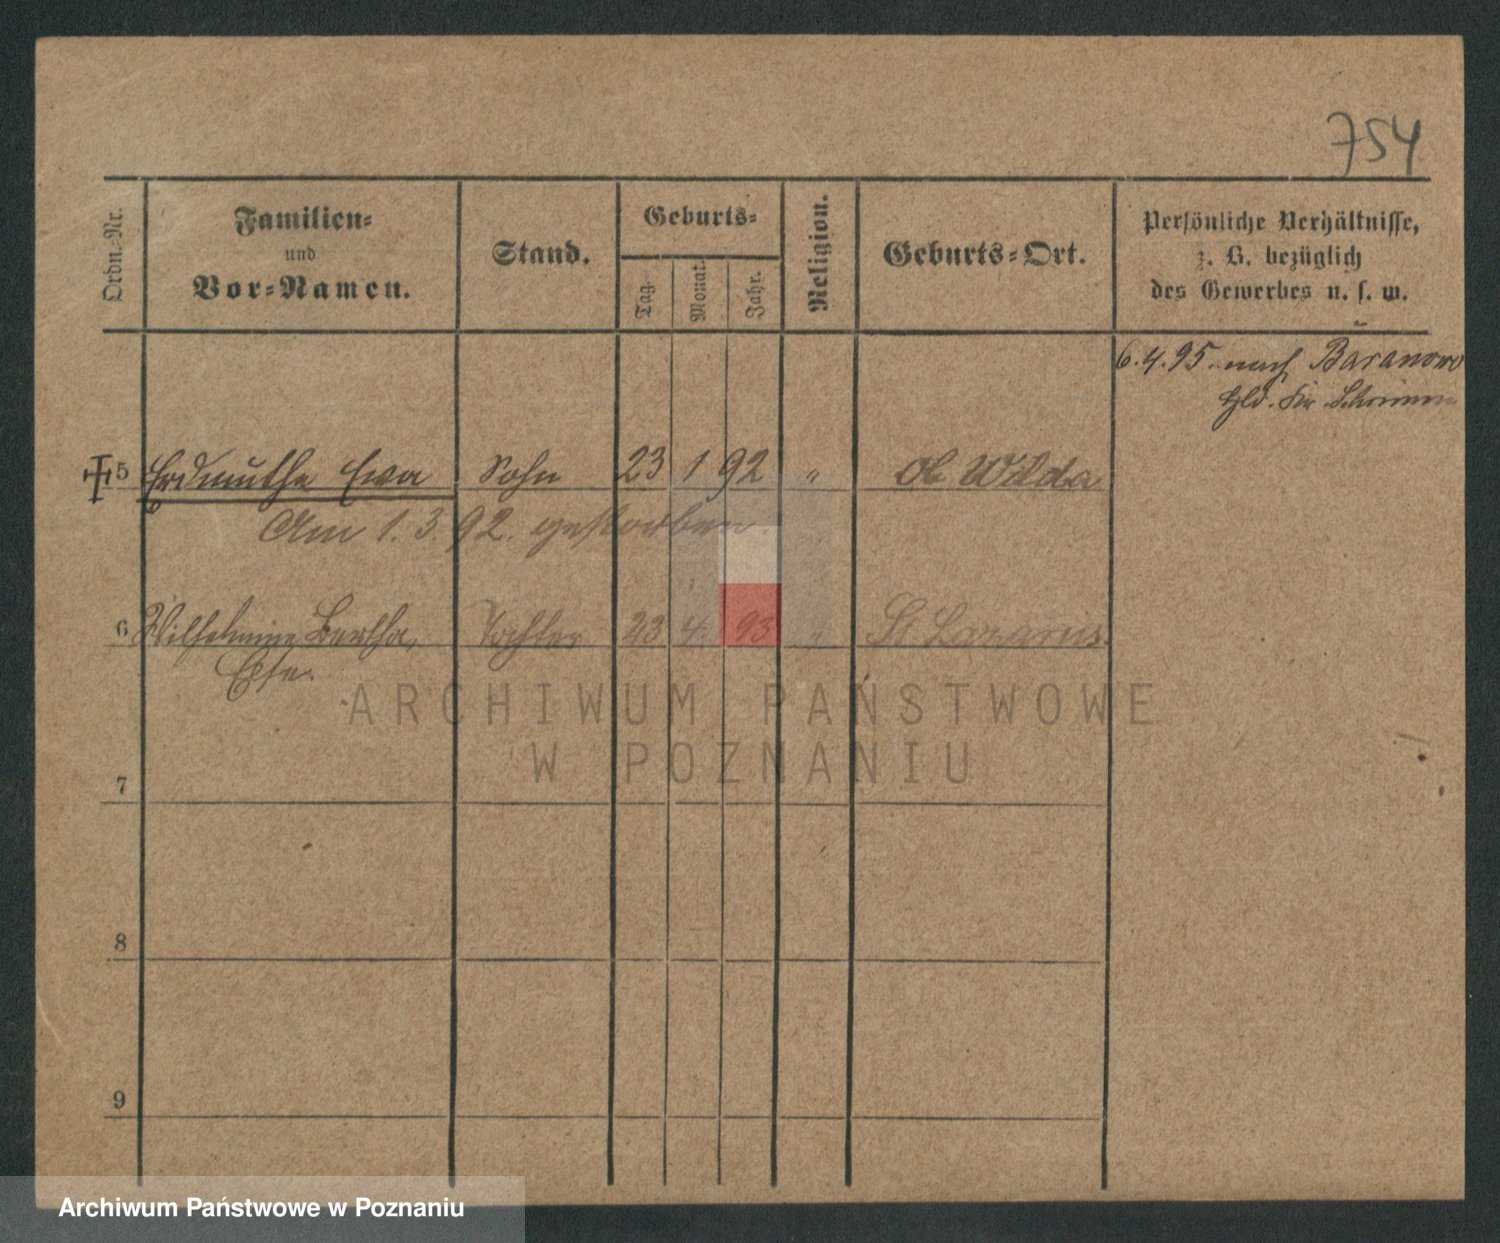 754
Ordn.-Nr.
Familien-
und
Vor-Namen.
Stand.
Geburts-
Tag.
Monat.
Jahr.
Religion.
Geburts-Ort.
Persönliche Verhältnisse,
z. B. bezüglich
des Gewerbes u. s. w.
6.4.95. nach Baranowo
Schrimm
5 Erdmuthe Ewa Sohn 23 1 92 " Ob Wilda
Am 1. 3. 92. gestorben.
6 Wilhelmine Bertha, Tochter 23 4. 93 " St Lazarus.
Else.
ARCHIWUM PAŃSTWOWE
W POZNANIU
7
8
9
Archiwum Państwowe w Poznaniu